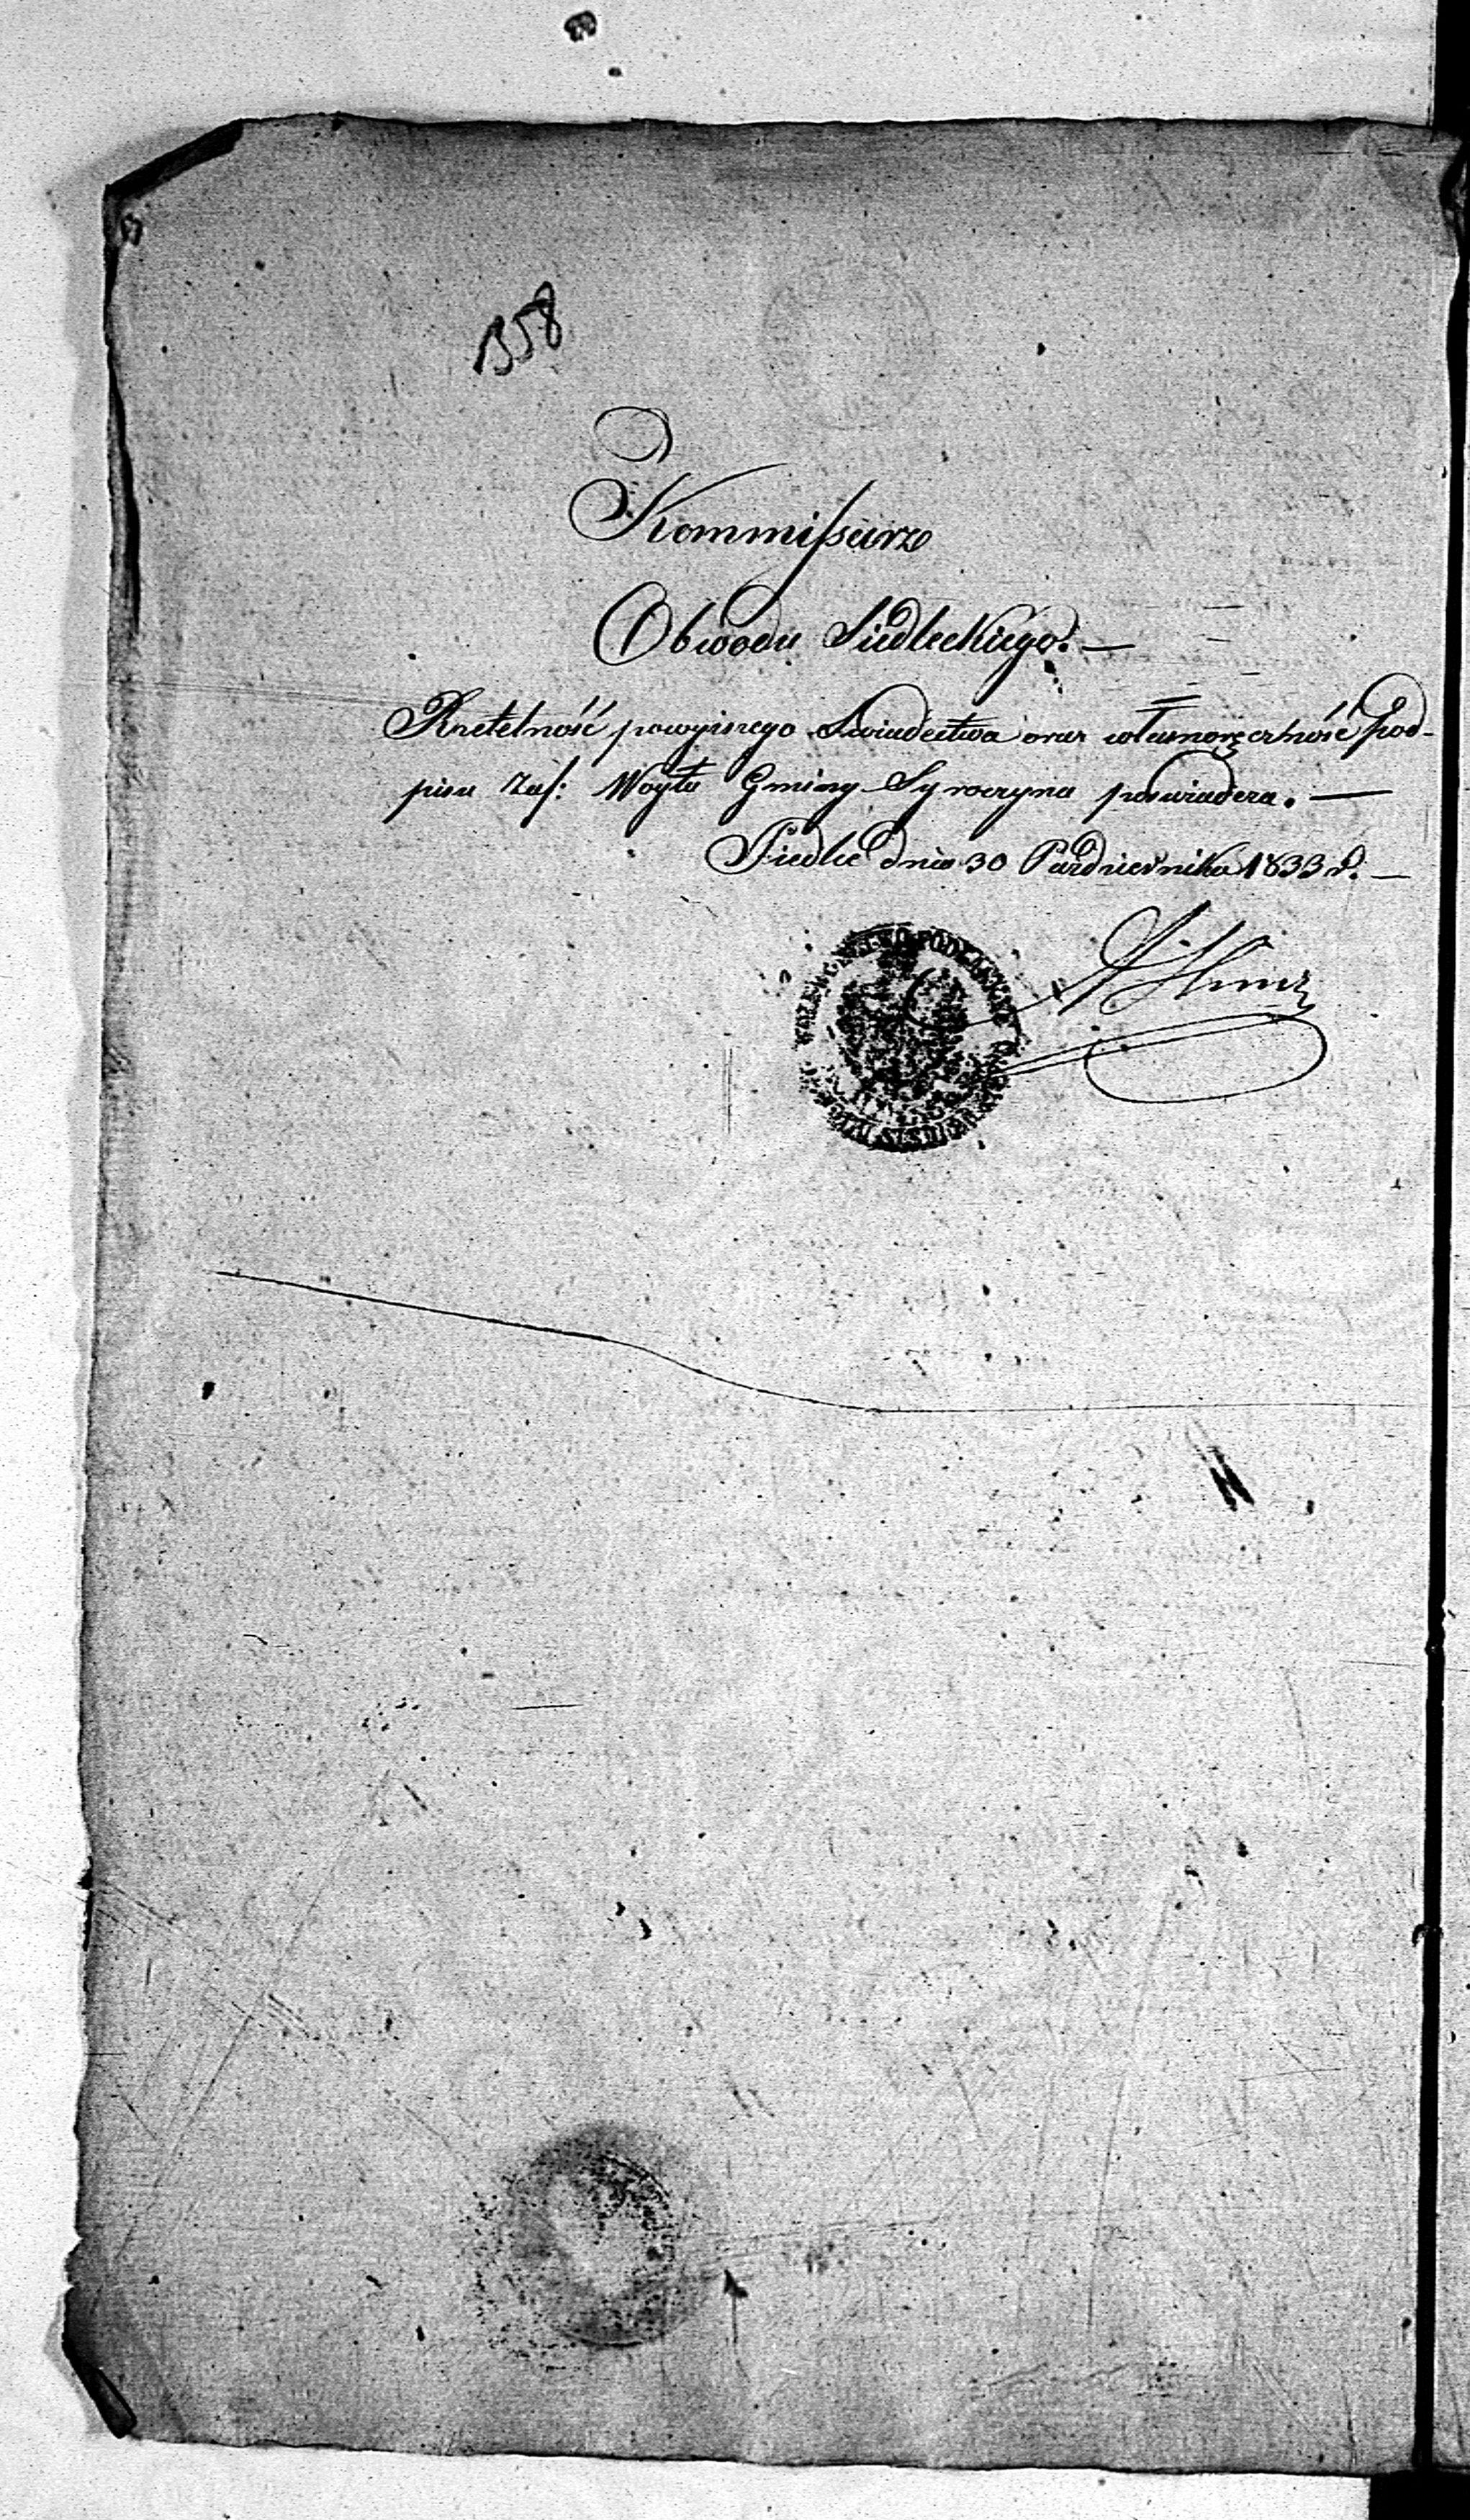 358
Kommissarz
Obwodu Siedleckiego. —
Rzetelność powyższego Swiadectwa oraz własnoręczność Pod-
pisu Zas: Woyta Gminy Syroczyna poswiadcza. —
Siedlce dnia 30 Pazdziernika 1833 r. —